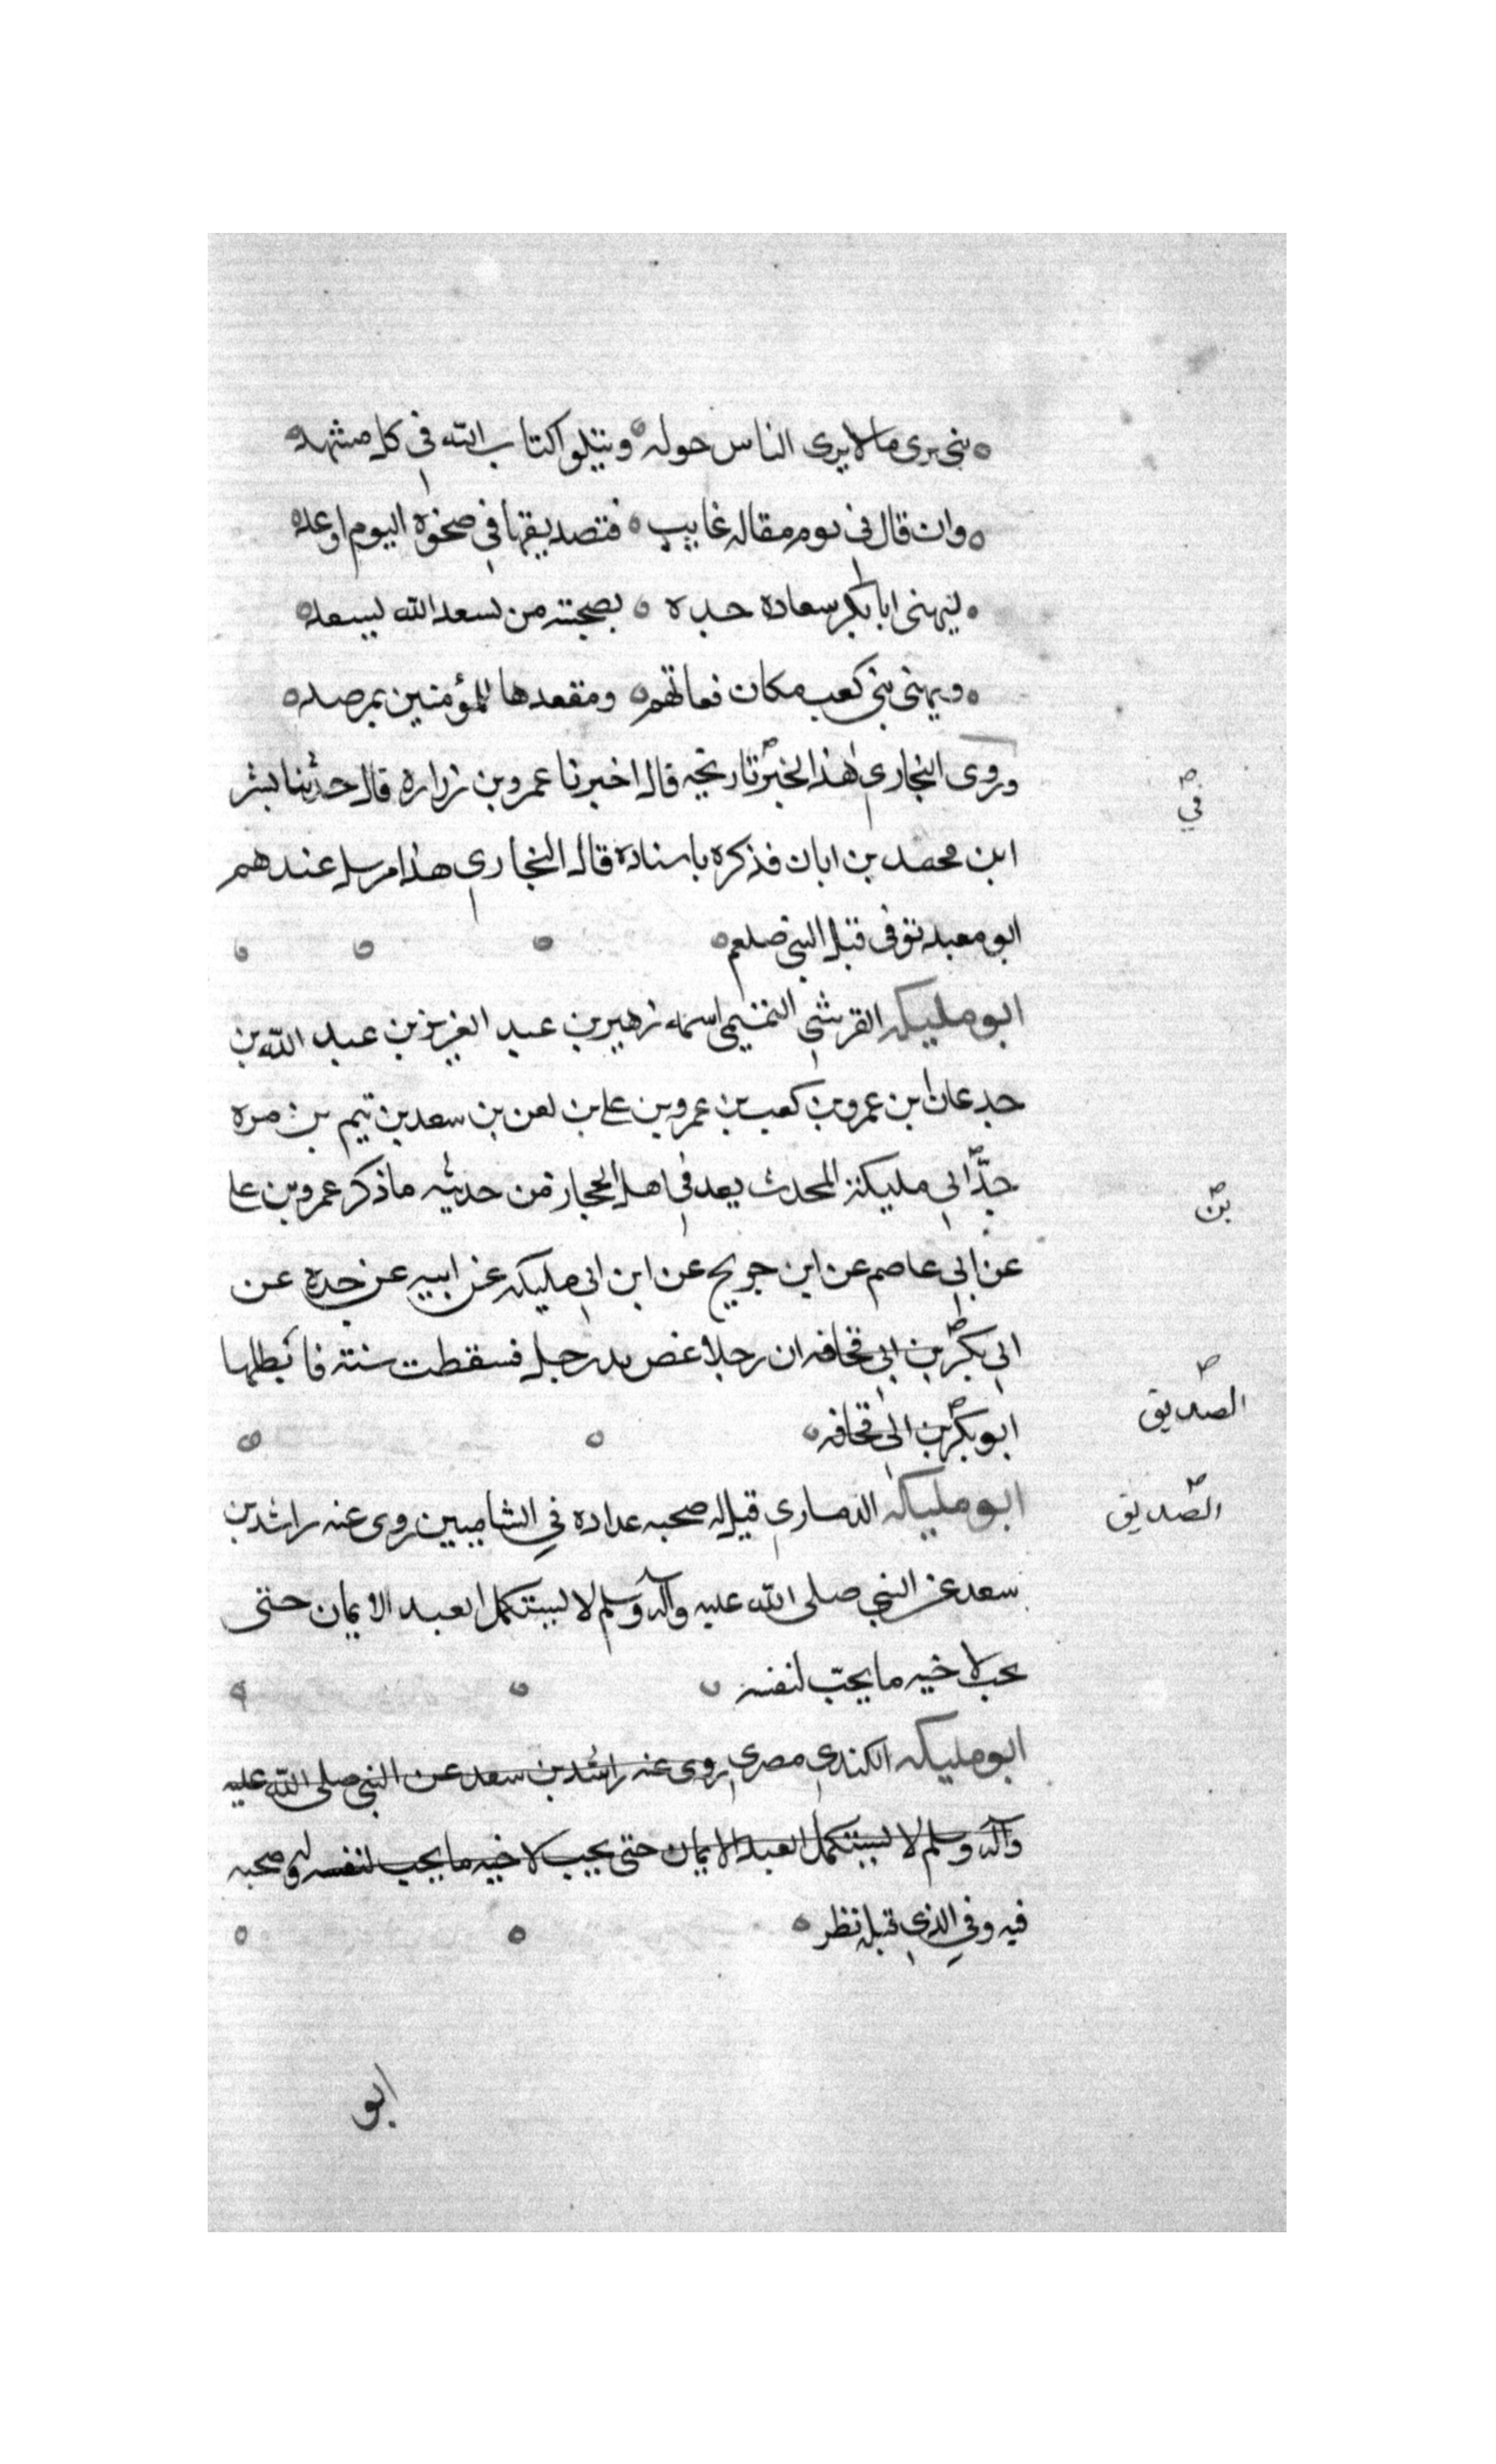 نبي يرى ما لا يرى الناس حوله ويتلوا كتاب الله في كل مشهد
وان قال في يوم مقاله غايب فتصديقها في ضحوة اليوم او غد
ليهنى ابا بكر سعادة جده بصحبته من يسعد الله يسعد
ويهنى بني كعب مكان فتاتهم ومقعدها للمؤمنين بمرصد
وروى البخاري هذا الخبر تاريخه قال اخبرنا عمرو بن زراره قال حدثنا بشر
في
ابن محمد بن ابان فذكره باسناده قال البخاري هذا مرسل عندهم
ابو معبد توفى قبل النبي صلعم
ابو مليكه القرشي التيمي اسمه زهير بن عبد العزيز بن عبد الله بن
جدعان ابن عمرو بن كعب بن عمرو بن علي بن سعد بن تيم بن مره
جدّ ابي مليكة المحدث يعد في اهل الحجاز من حديثه ما ذكر عمرو بن علي
بن
عن ابي عاصم عن ابن جريج عن ابن ابي مليكه عن ابيه عن جده عن
ابي بكر بن ابي قحافه ان رجلا عض يد رجل فسقطت سنته فابطلها
الصديق
ابو بكر بن ابي قحافه
الصّديق
ابو مليكه الذماري قيل له صحبه عداده في الشاميين روى عنه راشد بن
سعد عن النبي صلى الله عليه وآله وسلم لا يستكمل العبد الايمان حتى
يحب لاخيه ما يحبّ لنفسه
ابو مليكه الكندي مصري روى عنه راشد بن سعد عن النبي صلى الله عليه
وآله وسلم لا يستكمل العبد الايمان حتى يحب لاخيه ما يحب لنفسه له صحبه
فيه وفي الذي قبله نظر
ابو